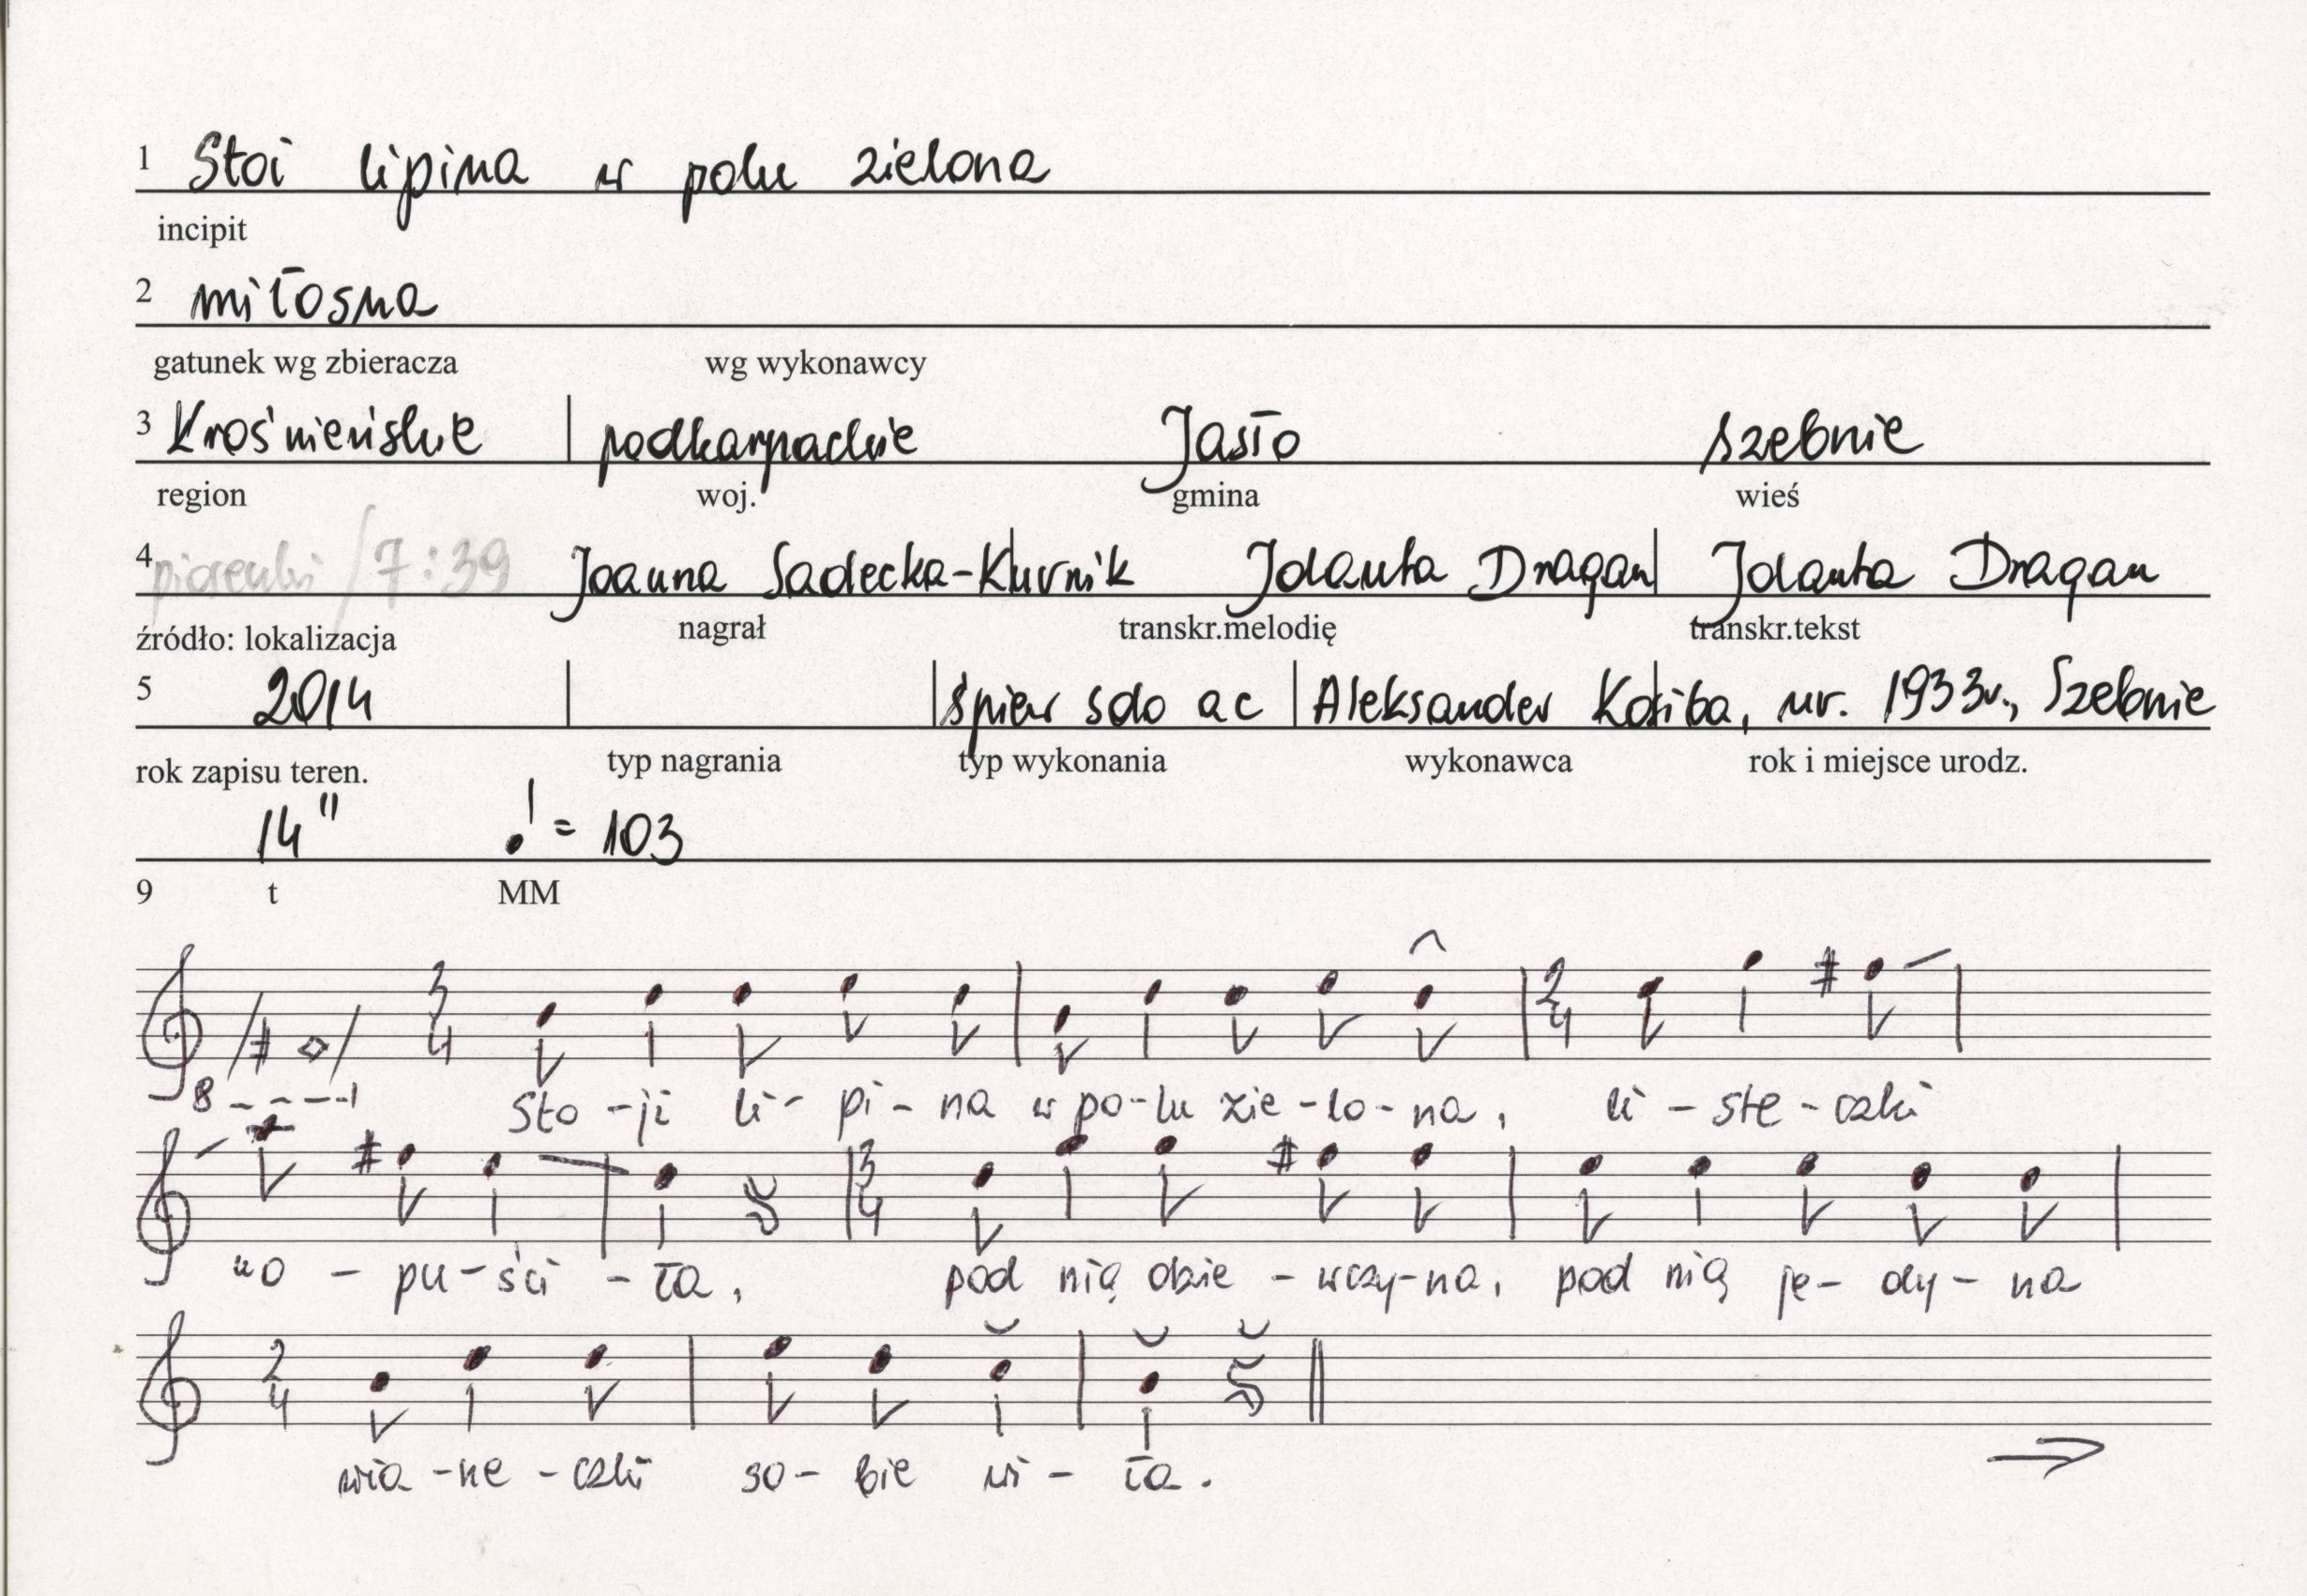 1 Stoi lipina w polu zielona
incipit
2 miłosna
gatunek wg zbieracza wg wykonawcy
3 Krośnieńskie podkarpackie Jasło Szebnie
region woj. gmina wieś
4 piosenki /7:39 Joanna Sadecka-Kurnik Jolanta Dragan Jolanta Dragan
źródło: lokalizacja nagrał transkr.melodię transkr.tekst
5 2014 śpiew solo ac Aleksander Kotiba, ur. 1933r., Szebnie
rok zapisu teren. typ nagrania typ wykonania wykonawca rok i miejsce urodz.
14" ♩ = 103
9 t MM
3 4 2 4
8 Sto-ji li-pi-na w po-lu zie-lo-na, li-ste-czki
3 4
uo-pu-ści-ła, pod nią dzie-wczy-na, pod nią je-dy-na
2 4
wia-ne-czki so-bie wi-ła.